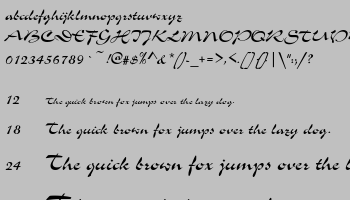 abcdefghijklmnopqrstuvwxyz
ABCDEFGHIJKLMNOPQRSTUV
0123456789 ` ~ !@#$%^&*()-_+=>,<.[]{}|\":;/?
12 The quick brown fox jumps over the lazy dog.
18 The quick brown fox jumps over the lazy dog.
24 The quick brown fox jumps over the lazy